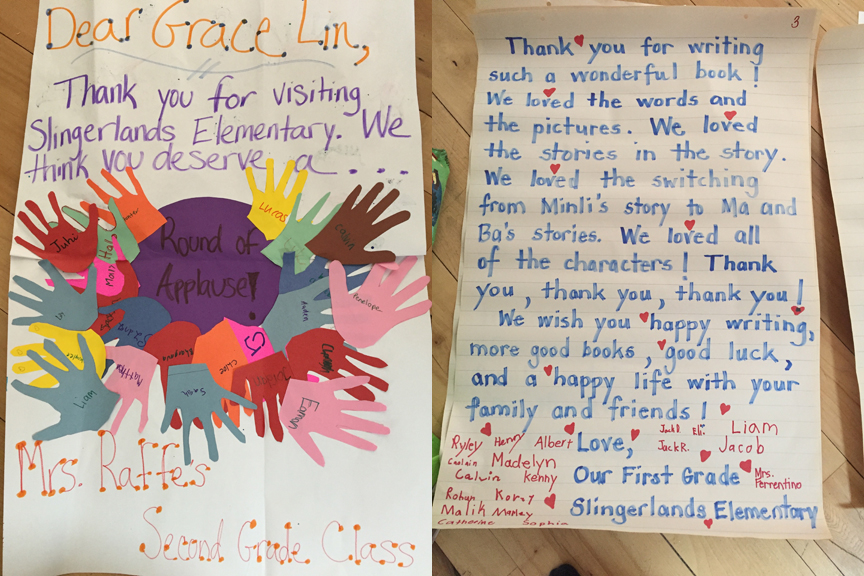 Dear Grace Lin,
Thank you for visiting
Slingerlands Elementary. We
think you deserve a....
Round of
Applause!
Juhi
Lucas
Calvin
Penelope
Aiden
Liam
Eamon
Mrs. Raffe's
Second Grade Class
3
Thank you for writing
such a wonderful book!
We loved the words and
the pictures. We loved
the stories in the story.
We loved the switching
from Minli's story to Ma and
Ba's stories. We loved all
of the characters! Thank
you, thank you, thank you!
We wish you happy writing,
more good books, good luck,
and a happy life with your
family and friends!
Ryley Henry Albert Love, Jack D. Eli Liam
Jack R. Jacob
Madelyn
Calvin Kenny Our First Grade Mrs.
Ferrentino
Rohan Korzy
Malik Manley Slingerlands Elementary
Catherine Sophia